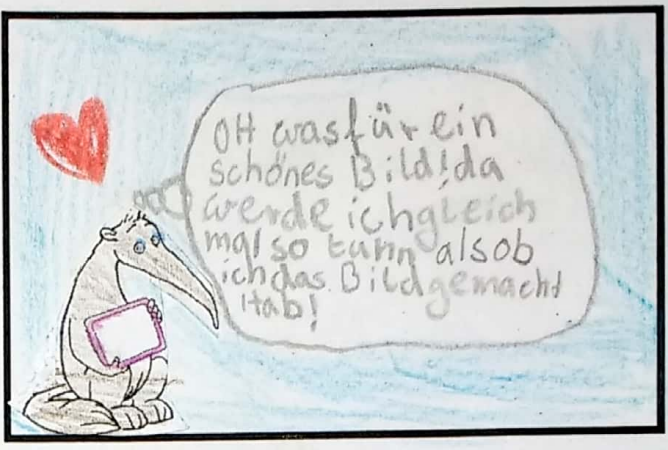 OH was für ein
schönes Bild! da
werde ich gleich
mal so tunn als ob
ich das Bild gemacht
Hab!